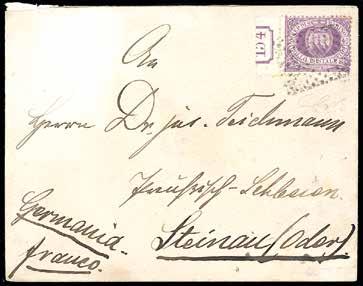 154
An
Herrn Dr. jur. Teichmann
Preussisch-Schlesien.
Steinau (Oder)
Germania
franco.